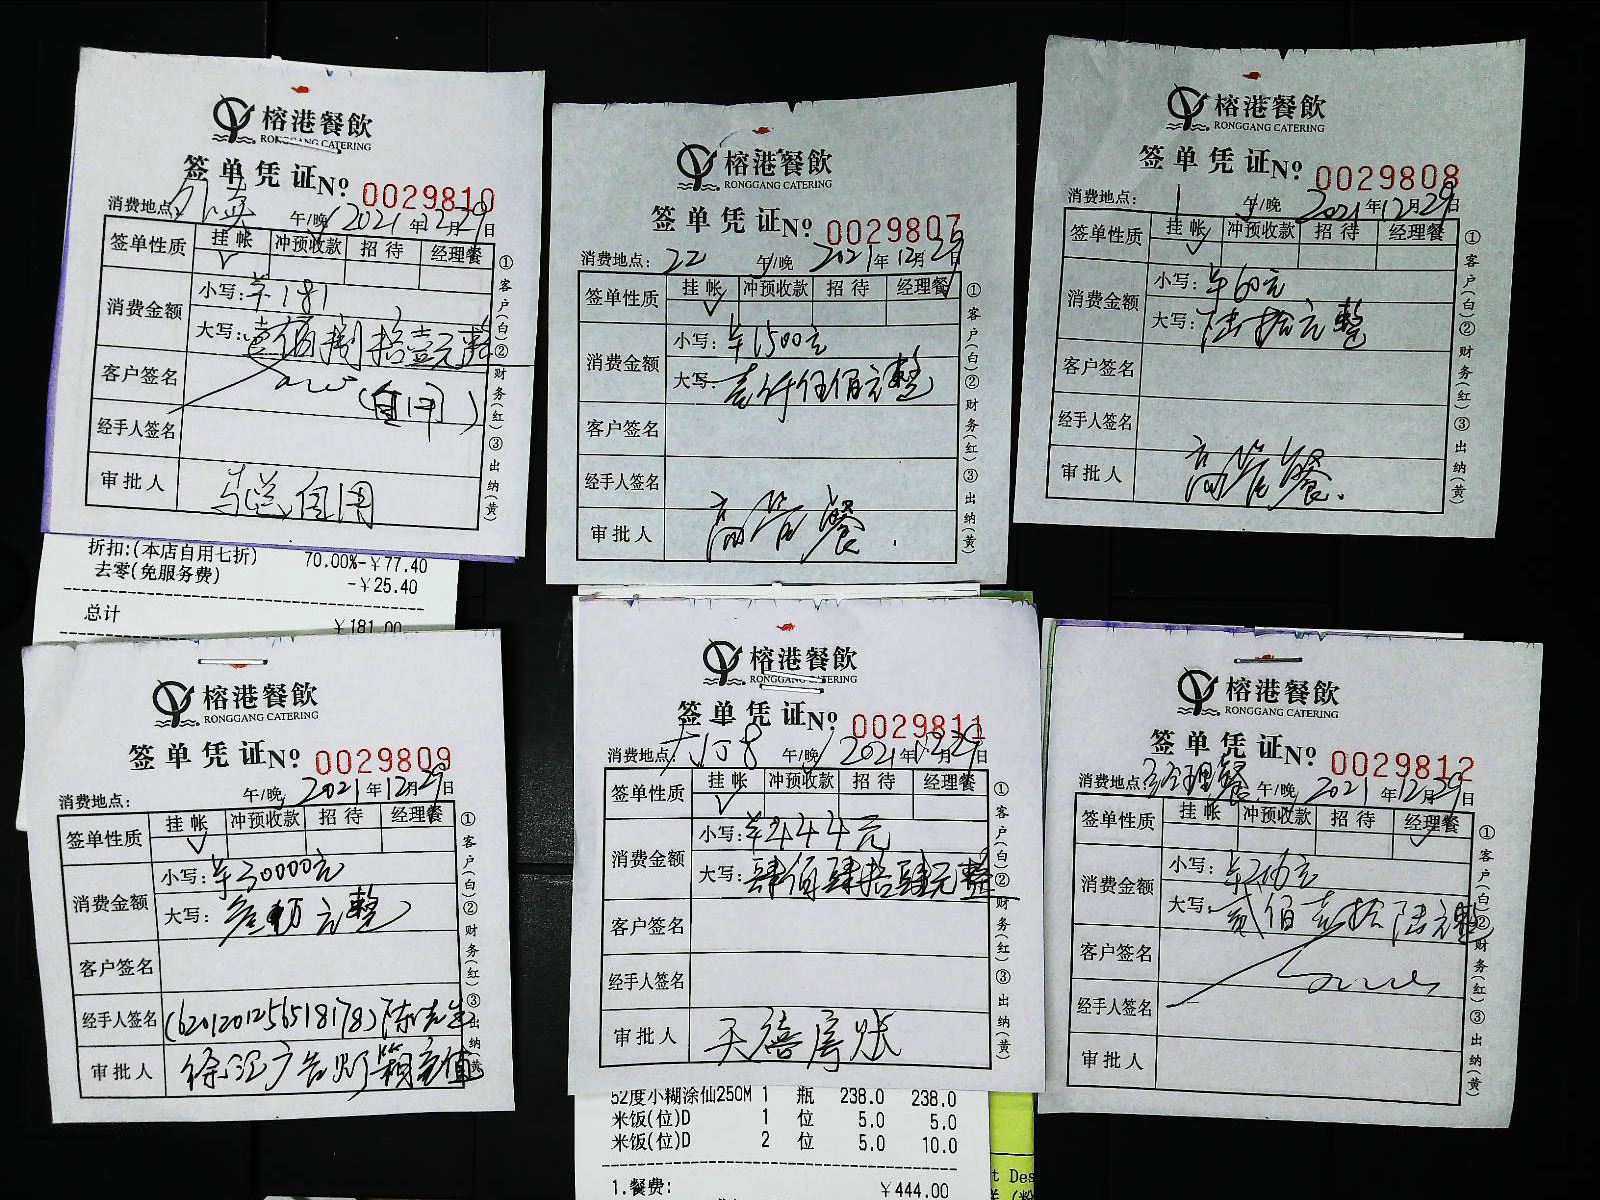 榕港餐飲
RONGGANG CATERING
签单凭证 Nº 0029810
消费地点: 外卖 午/晚 2021年12月29日
签单性质 挂帐 冲预收款 招待 经理餐
消费金额
小写: ¥181
大写: 壹佰捌拾壹元整
客户签名 (自用)
经手人签名
审批人 马送自用
①客户(白)②财务(红)③出纳(黄)
折扣:(本店自用七折) 70.00%-￥77.40
去零(免服务费) -￥25.40
总计 ￥181.00
榕港餐飲
RONGGANG CATERING
签单凭证 Nº 0029807
消费地点: 22 午/晚 2021年12月29日
签单性质 挂帐 冲预收款 招待 经理餐
消费金额
小写: ¥1500元
大写: 壹仟伍佰元整
客户签名
经手人签名
审批人 高管餐.
①客户(白)②财务(红)③出纳(黄)
榕港餐飲
RONGGANG CATERING
签单凭证 Nº 0029808
消费地点: 午/晚 2021年12月29日
签单性质 挂帐 冲预收款 招待 经理餐
消费金额
小写: ¥60元
大写: 陆拾元整
客户签名
经手人签名
审批人 高管餐.
①客户(白)②财务(红)③出纳(黄)
榕港餐飲
RONGGANG CATERING
签单凭证 Nº 0029809
消费地点: 午/晚 2021年12月29日
签单性质 挂帐 冲预收款 招待 经理餐
消费金额
小写: ¥30000元
大写: 叁万元整
客户签名
经手人签名 (6201201256518178)陈先生
审批人 徐汇广告
①客户(白)②财务(红)③出纳(黄)
榕港餐飲
RONGGANG CATERING
签单凭证 Nº 0029811
消费地点: 大厅8 午/晚 2021年12月29日
签单性质 挂帐 冲预收款 招待 经理餐
消费金额
小写: ¥444元
大写: 肆佰肆拾肆元整
客户签名
经手人签名
审批人 天禧房账
①客户(白)②财务(红)③出纳(黄)
52度小糊涂仙250M 1 瓶 238.0 238.0
米饭(位)D 1 位 5.0 5.0
米饭(位)D 2 位 5.0 10.0
1.餐费: ￥444.00
t Des
榕港餐飲
RONGGANG CATERING
签单凭证 Nº 0029812
消费地点: 经理餐 午/晚 2021年12月29日
签单性质 挂帐 冲预收款 招待 经理餐
消费金额
小写: ¥216元
大写: 贰佰壹拾陆元整
客户签名
经手人签名
审批人
①客户(白)②财务(红)③出纳(黄)